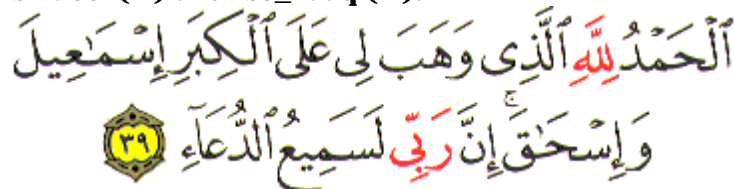 ٱلْحَمْدُ لِلَّهِ ٱلَّذِى وَهَبَ لِى عَلَى ٱلْكِبَرِ إِسْمَٰعِيلَ
وَإِسْحَٰقَ ۚ إِنَّ رَبِّى لَسَمِيعُ ٱلدُّعَآءِ ٣٩